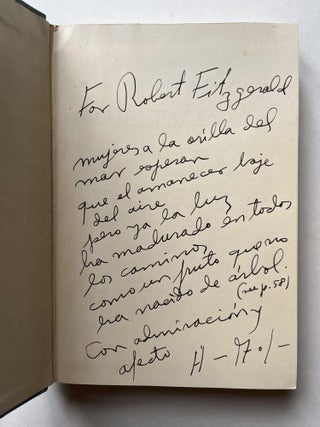 For Robert Fitzgerald
mujeres a la orilla del
mar esperan
que el amanecer baje
del aire
pero ya la luz
ha madurado en todos
los caminos
como un fruto que no
ha nacido de árbol.
(see p. 58)
Con admiración y
afecto H